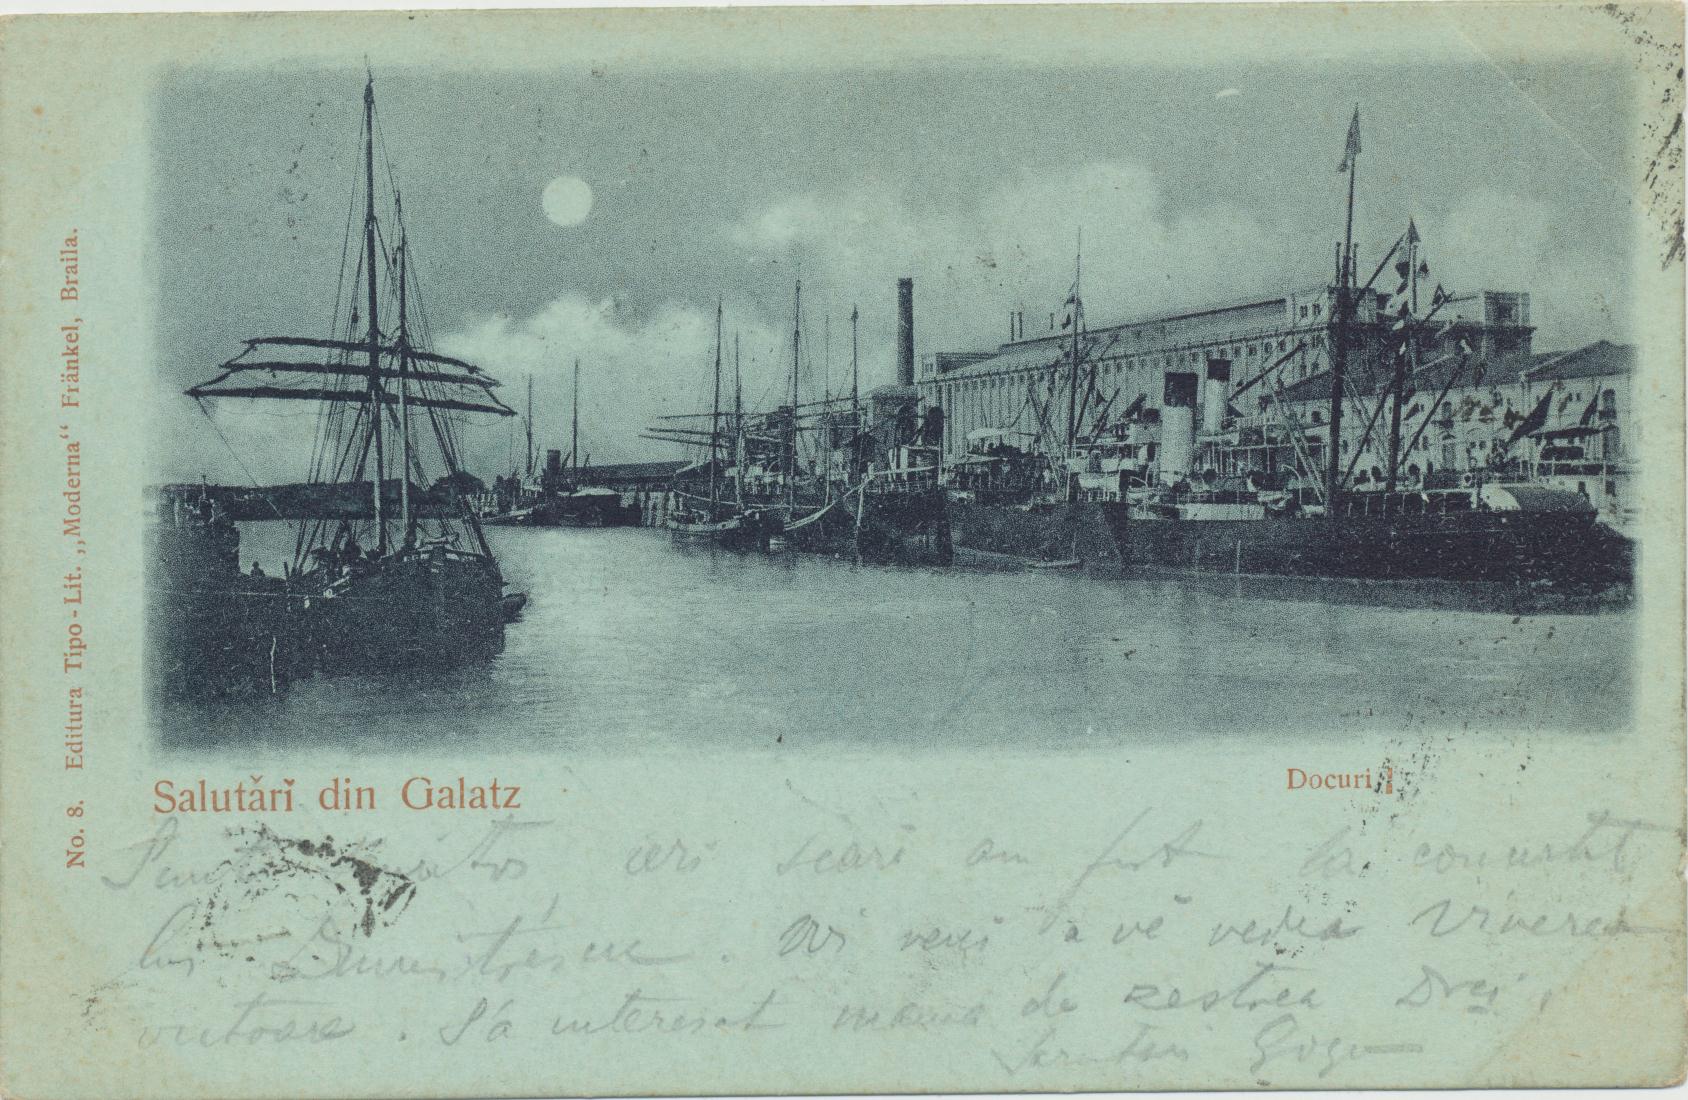 No. 8. Editura Tipo-Lit. „Moderna“ Fränkel, Braila.
Salutărĭ din Galatz
Docuri
ieri seară am fost la concertul
lui Dumitrescu. a vĕ vedea Vinerea
viitoare. S'a interesat mama de zestrea